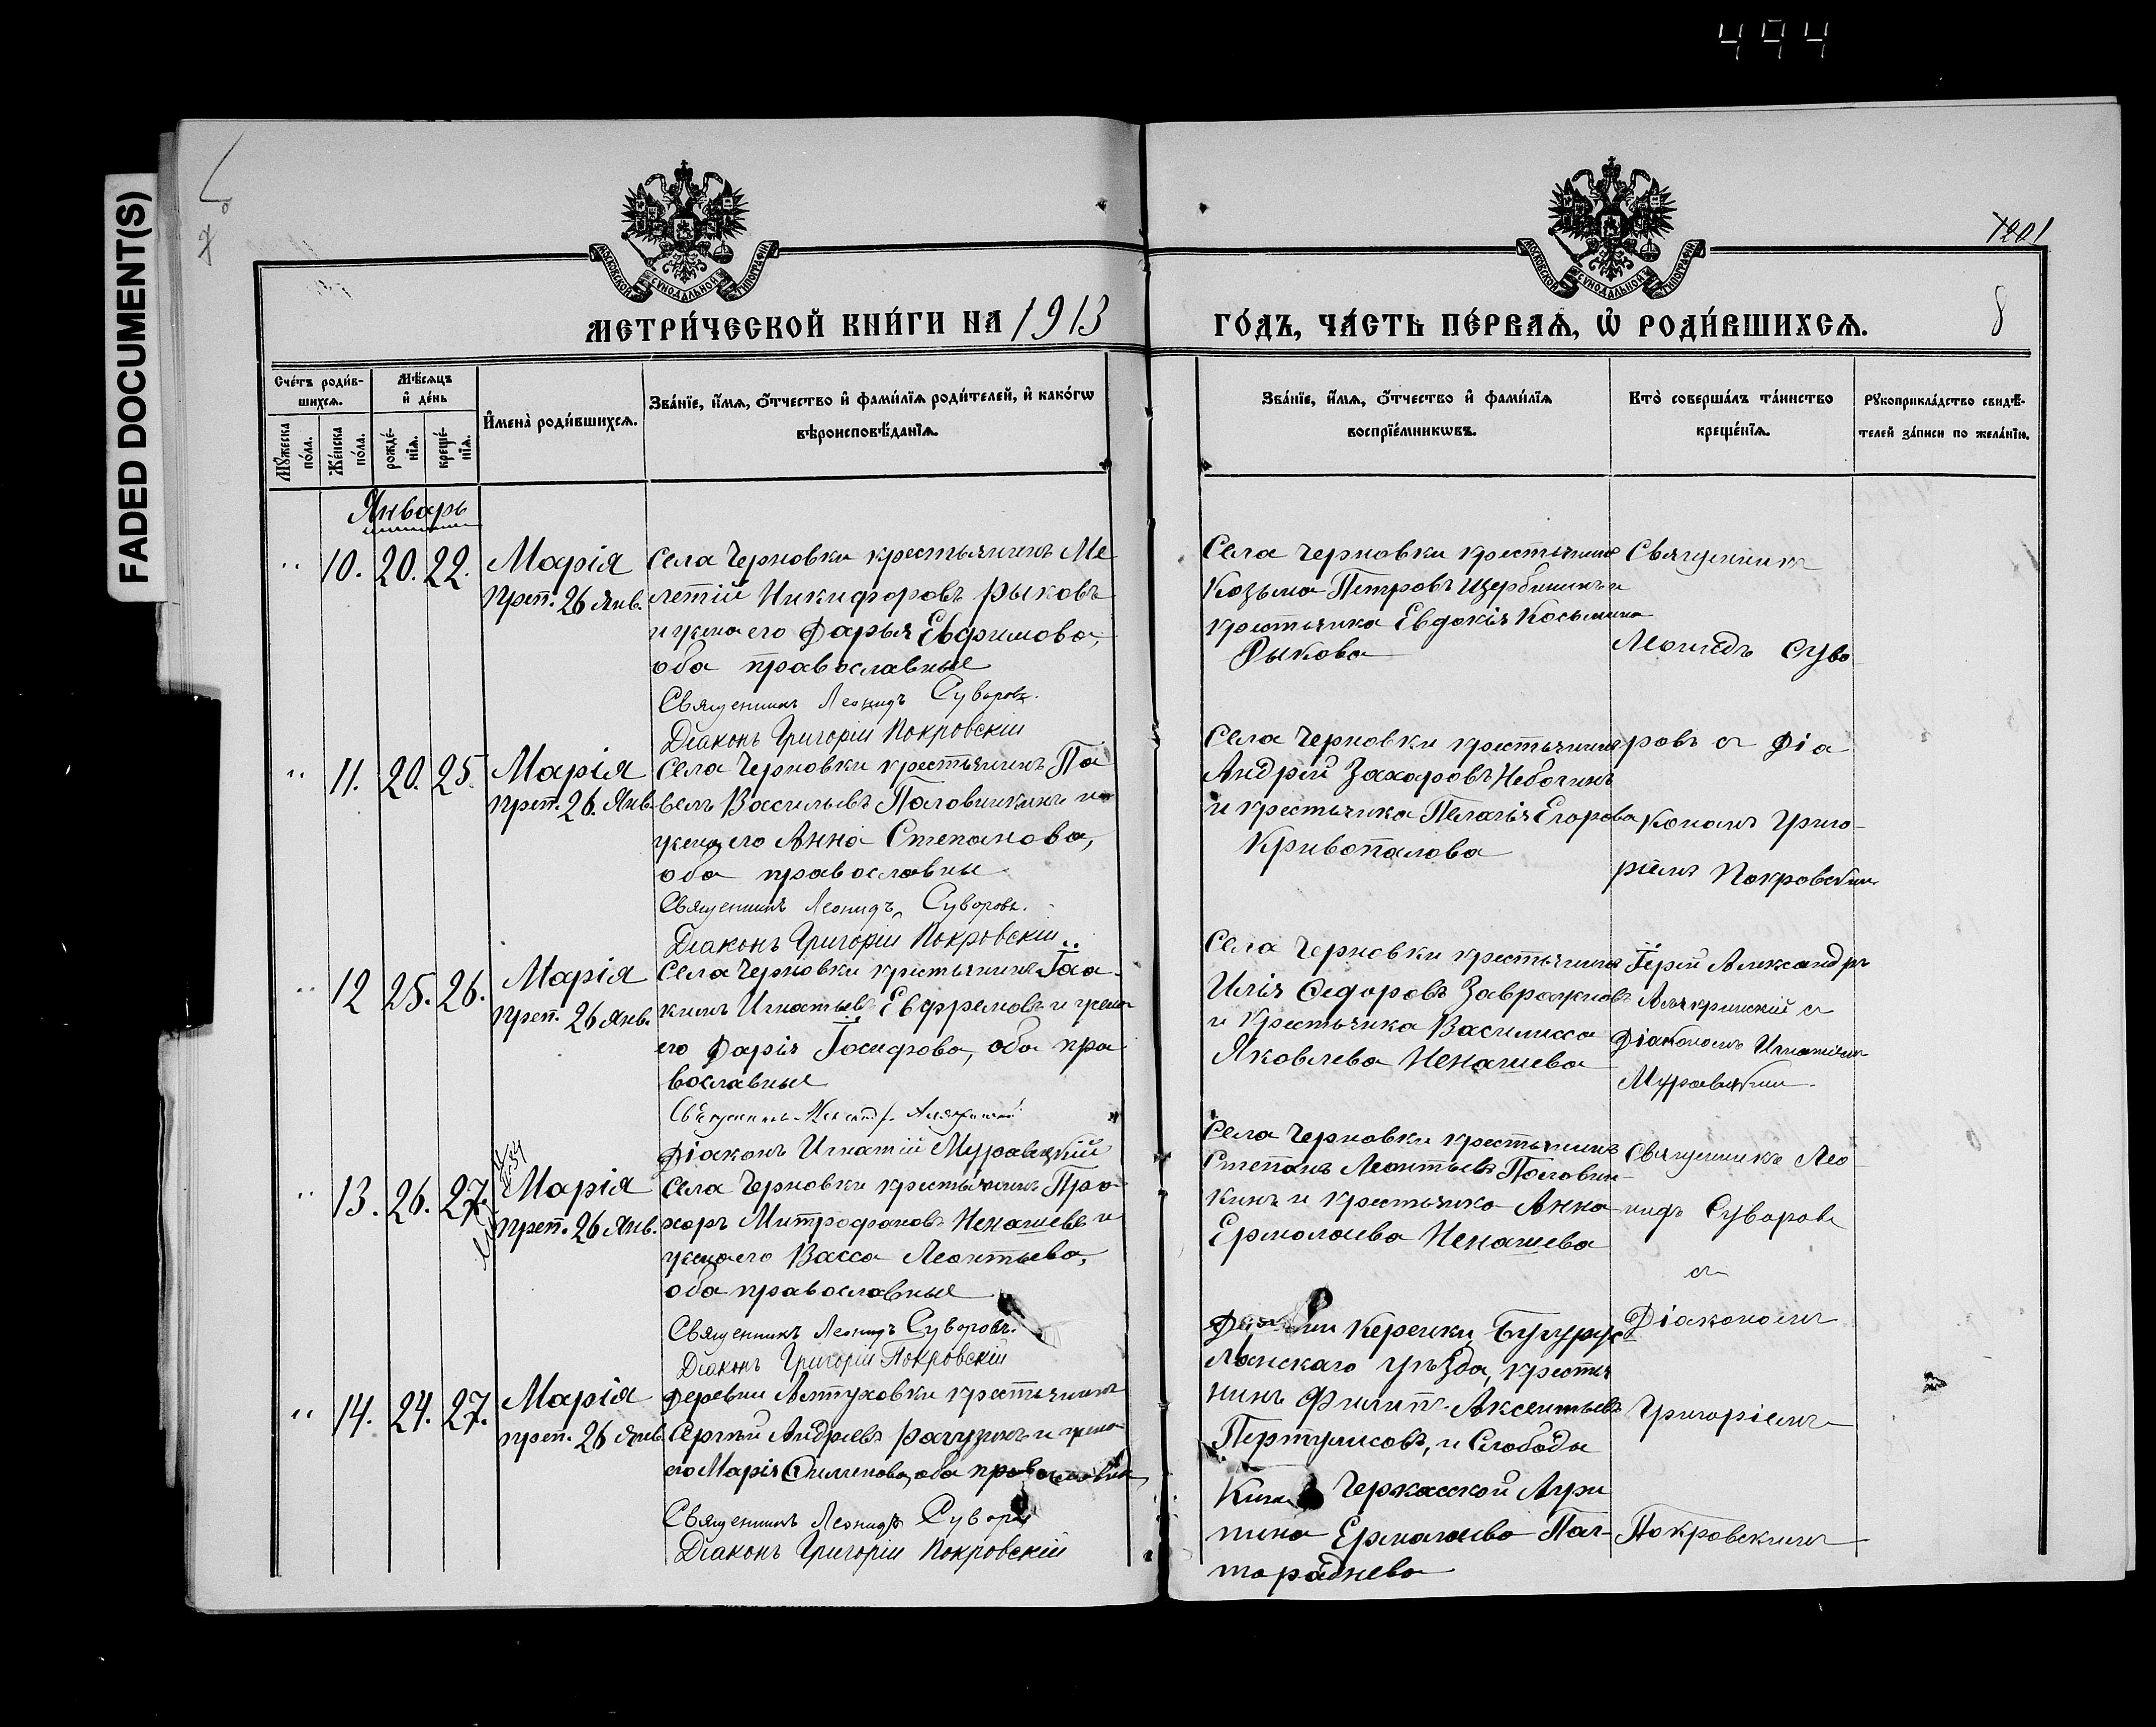 494
FADED DOCUMENT(S)
1201
8
МОСКОВСКОЙ СѴНОДАЛЬНОЙ ТИПОГРАФІИ
МОСКОВСКОЙ СѴНОДАЛЬНОЙ ТИПОГРАФІИ
МЕТРИ́ЧЕСКОЙ КНИ́ГИ НА 1913
ГО́ДЪ, ЧА́СТЬ ПЕ́РВАѦ, Ѡ҆ РОДИ́ВШИХСѦ.
Сче́тъ роди́в-
шихсѧ.
Мѣ́сѧцъ
и҆ де́нь
Мꙋ́жеска по́ла.
Же́нска по́ла.
рожде́-нїѧ.
креще́-нїѧ.
И҆мена̀ роди́вшихсѧ.
Зва́нїе, и҆́мѧ, ѻ҆́тчество и҆ фами́лїѧ роди́телей, и҆ како́гѡ
вѣроисповѣ́данїѧ.
Зва́нїе, и҆́мѧ, ѻ҆́тчество и҆ фами́лїѧ
воспрїе́мникѡвъ.
Кто̀ соверша́лъ та́инство
креще́нїѧ.
Рꙋкоприкла́дство свидѣ́-
телей за́писи по жела́нїю.
Январь
" 10. 20. 22. Марія
Преп. 26 Янв.
Села Черновки крестьянинъ Ме
летій Никифоровъ Рыковъ
и жена его Дарья Евфимова,
оба православные
Священникъ Леонидъ Суворовъ.
Діаконъ Григорій Покровскій
Села Черновки крестьянинъ
Козьма Петровъ Щербининъ и
крестьянка Евдокія Косьмина
Рыкова
Священникъ
Леонидъ Суво
" 11. 20. 25 Марія
Преп. 26. Янв.
Села Черновки крестьянинъ Па
велъ Васильевъ Половинкинъ и
жена его Анна Степанова,
оба православные
Священникъ Леонидъ Суворовъ.
Діаконъ Григорій Покровскій
Села Черновки крестьянинъ
Андрей Захаровъ
и крестьянка Пелагія Егорова
Кривопалова
ровъ съ Діа
кономъ Григо-
ріемъ Покровскимъ
" 12 25. 26. Марія
Преп. 26 Янв.
Села Черновки крестьянинъ Іоа-
кимъ Игнатьевъ Евфремовъ и жена
его Дарія Іосифова, оба пра
вославные
Діаконъ Игнатій Муравецкій
Села Черновки крестьянинъ
Илія Ѳедоровъ Завражновъ
и Крестьянка Василисса
Яковлева Ненашева
Іерей Александръ
съ
Діакономъ Игнатіемъ
" 13. 26. 27. Марія
Преп. 26 Янв.
Села Черновки крестьянинъ Про
хоръ Митрофановъ Ненашевъ и
жена его Васса Леонтьева,
оба православные
Священникъ Леонидъ Суворовъ.
Діаконъ Григорій Покровскій
Села Черновки крестьянинъ
Степанъ Леонтьевъ Половин-
кинъ и крестьянка Анна
Ермолаева Ненашева
Священникъ Лео
нидъ Суворовъ
съ
" 14. 24. 27. Марія
преп. 26 Янв.
Деревни Алтуховки крестьянинъ
Сергѣй Андреевъ и жена
его Марія оба православные
Священникъ Леонидъ Суворовъ
Діаконъ Григорій Покровскій
Керенки Бугурус
ланскаго уѣзда, крестья
нинъ Филиппъ Аксентьевъ
и Слобода
Черкасской Агри
пина Ермолаева Пал-
Діакономъ
Григоріемъ
Покровскимъ